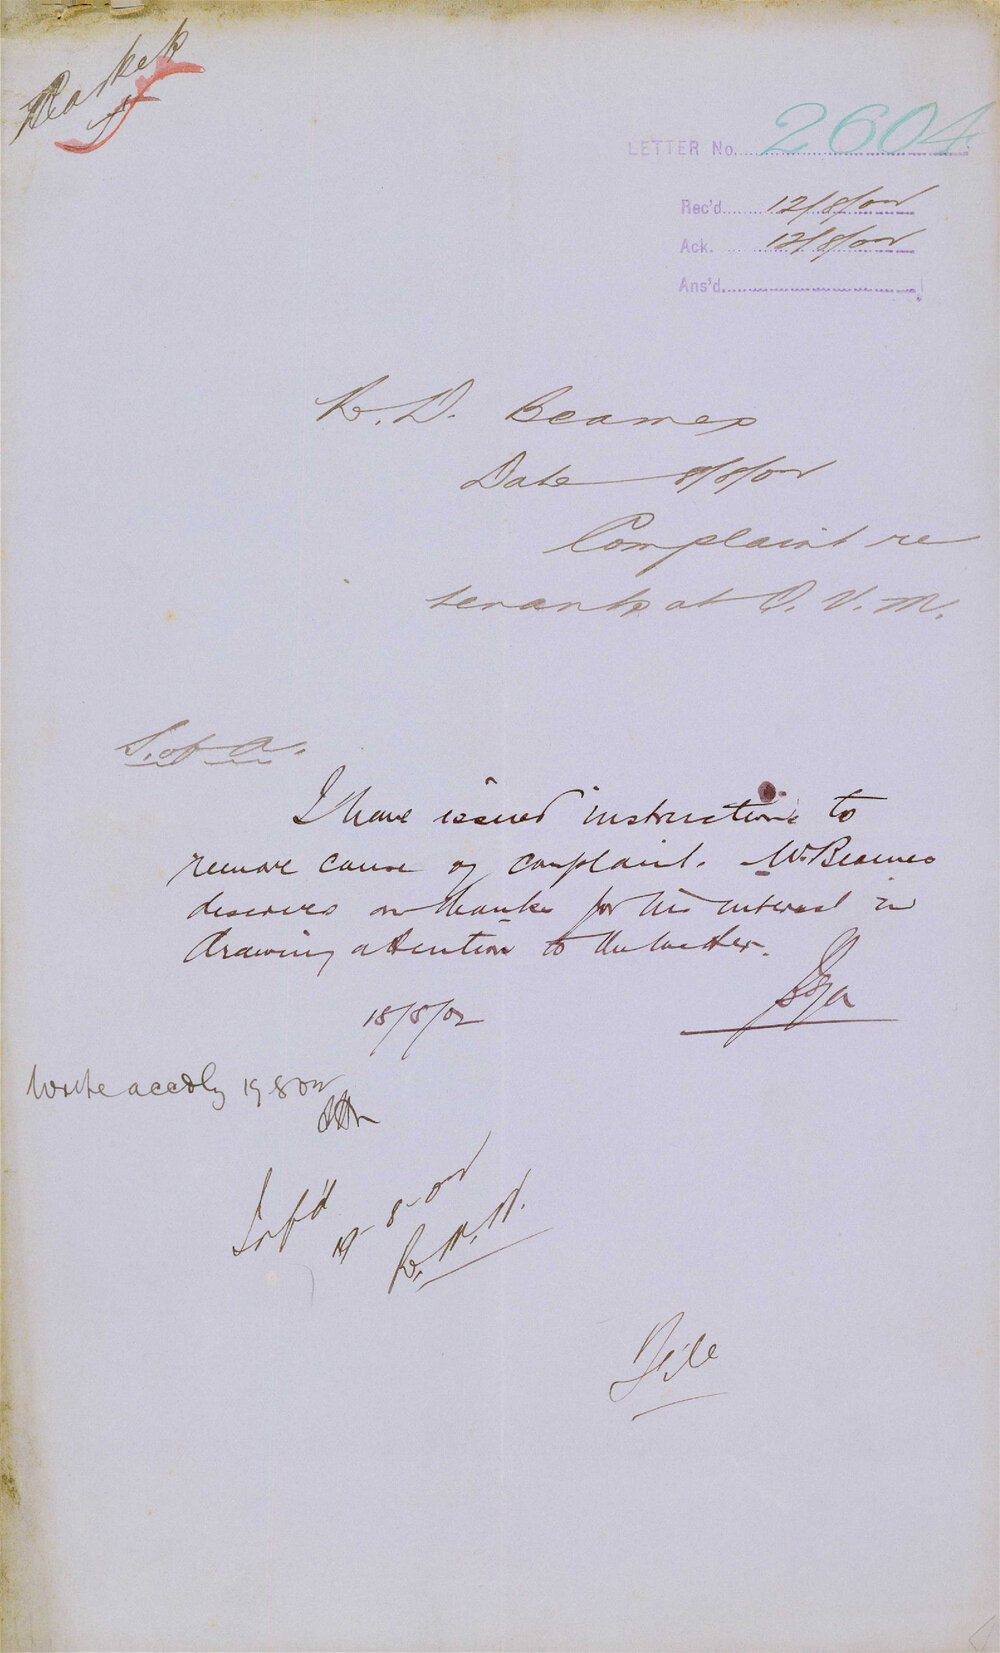 LETTER No. 2604
Rec'd 12/8/02
Ack. 12/8/02
Ans'd
D. Beames
Date 8/8/02
Complaint re
tenants at Q. V. M.
S. of A.
I have issued instructions to
remove cause of complaint. Mr Beames
deserves our thanks for his interest in
drawing attention to the matter.
18/8/02
Write accdly 19 8 02
Inf'd
19-8-02
File